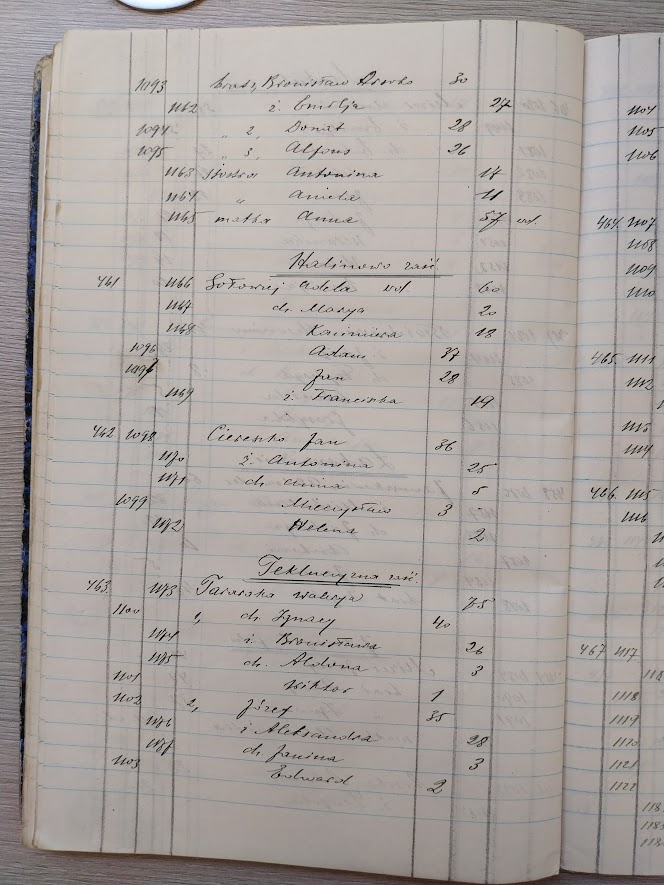 1093 brat 1, Bronisław 30
1162 ż. Emilja 27
1094 „ 2, Donat 28
1095 „ 3, Alfons 26
1163 siostra Antonina 17
1164 „ Aniela 11
1165 matka Anna 57 wd.
Kalinowo zaśc.
461 1166 Sołowiej Adela wd. 60
1167 ch. Marya 20
1168 Kazimiera 18
1096 Adam 37
1097 Jan 28
1169 ż. Franciszka 19
462 1098 Ciereszko Jan 36
1170 ż. Antonina 25
1171 ch. Anna 5
1099 Mieczysław 3
1172 Helena 2
zaśc.
463 1173 Walerja 75
1100 „ ch. Ignacy 40
1174 ż. Bronisława 26
1175 ch. Aldona 3
1101 Wiktor 1
1102 2, Józef 35
1176 ż Aleksandra 28
1177 ch. Janina 3
1103 Edward 2
1104
1105
1106
464 1107
1108
1109
1110
465 1111
1112
1113
1114
466 1115
1116
467 1117
1118
1119
1120
1121
1122